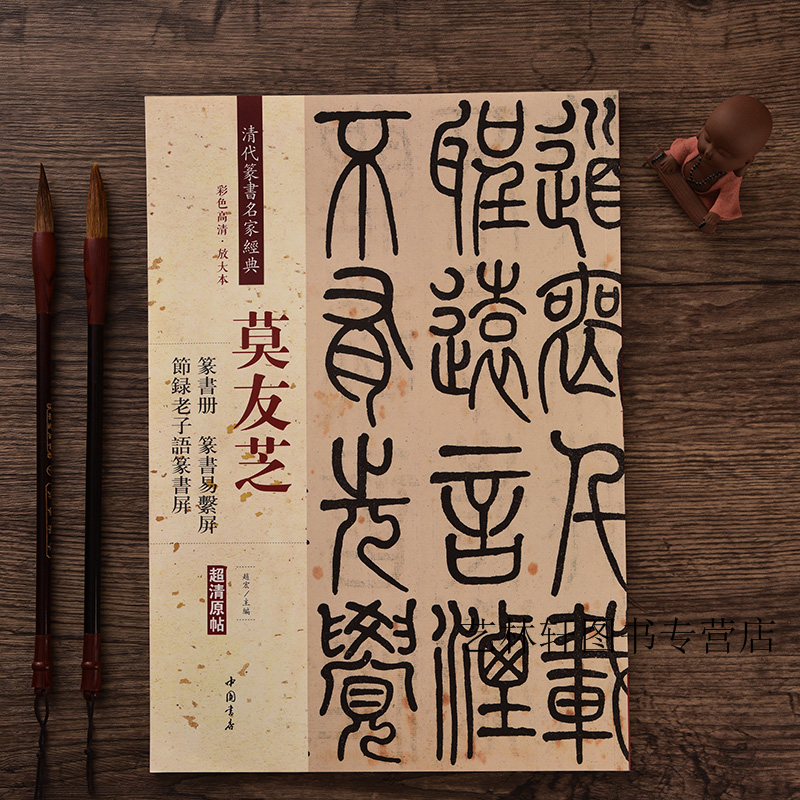 清代篆書名家經典
彩色高清·放大本
莫友芝
篆書册 篆書易繫屏
節録老子語篆書屏
趙宏/主編
超清原帖
中国書店
道喪千載
聖遠言湮
不有先覺
艺林轩图书专营店